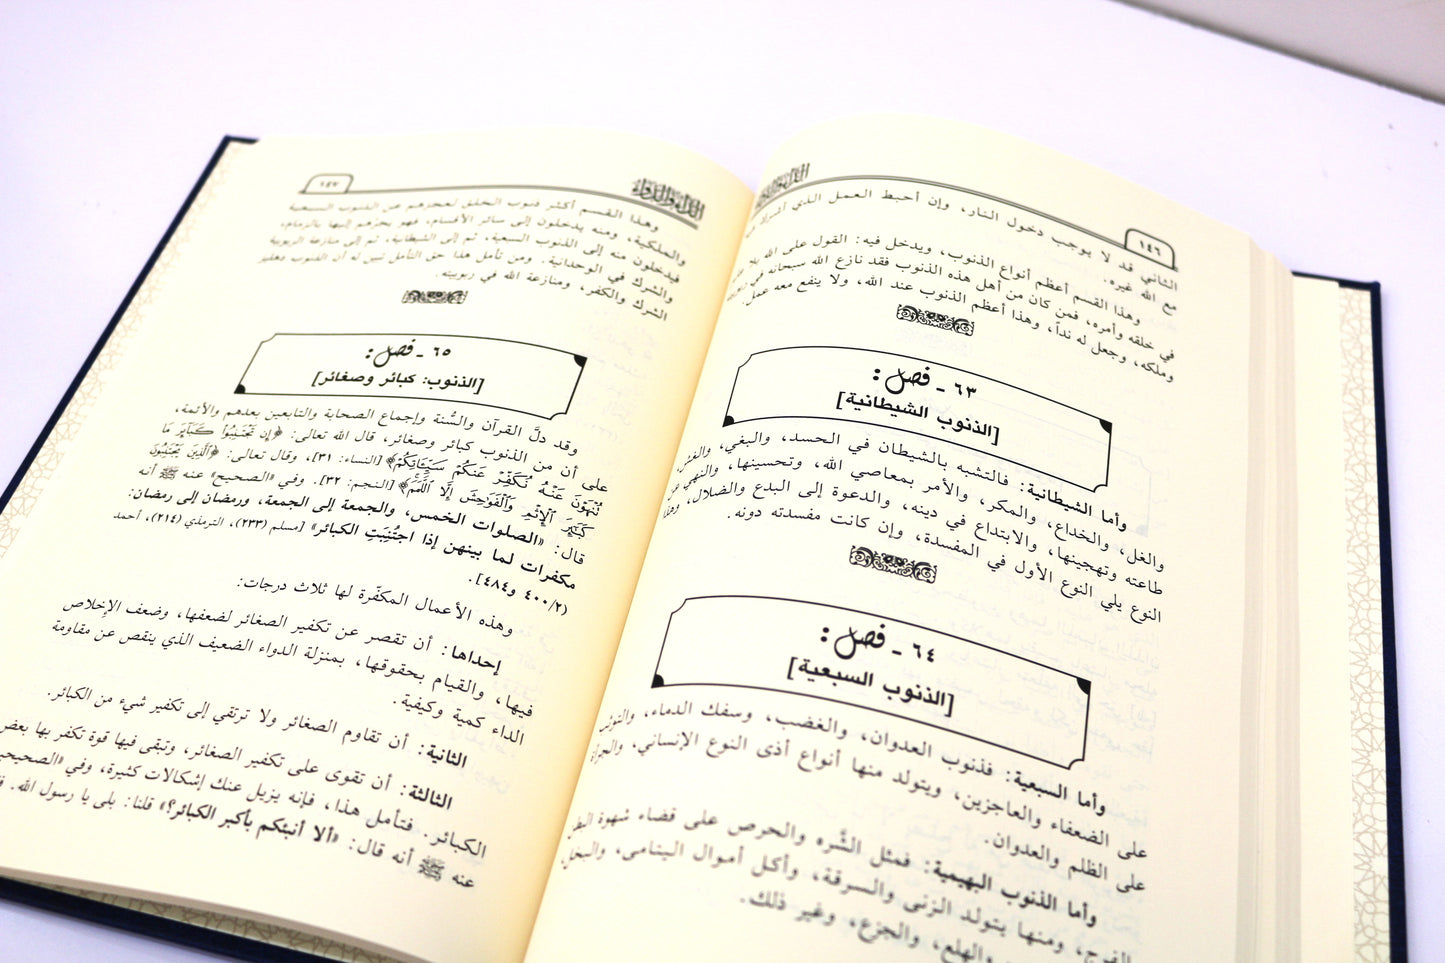 ١٤٦
الثاني قد لا يوجب دخول النار، وإن أحبط العمل الذي أشرك فيه
مع الله غيره.
وهذا القسم أعظم أنواع الذنوب، ويدخل فيه: القول على الله بلا علم
في خلقه وأمره، فمن كان من أهل هذه الذنوب فقد نازع الله سبحانه في
وملكه، وجعل له نداً، وهذا أعظم الذنوب عند الله، ولا ينفع معه عمل.
٦٣ - فصل:
[الذنوب الشيطانية]
وأما الشيطانية: فالتشبه بالشيطان في الحسد، والبغي، والغش
والغل، والخداع، والمكر، والأمر بمعاصي الله، وتحسينها، والنهي عن
طاعته وتهجينها، والابتداع في دينه، والدعوة إلى البدع والضلال، وهذا
النوع يلي النوع الأول في المفسدة، وإن كانت مفسدته دونه.
٦٤ - فصل:
[الذنوب السبعية]
وأما السبعية: فذنوب العدوان، والغضب، وسفك الدماء، والتوثب
على الضعفاء والعاجزين، ويتولد منها أنواع أذى النوع الإنساني، والجرأة
على الظلم والعدوان.
وأما الذنوب البهيمية: فمثل الشَّره والحرص على قضاء شهوة البطن
الفرج، ومنها يتولد الزنى والسرقة، وأكل أموال اليتامى، والبخل،
والهلع، والجزع، وغير ذلك.
الداء والدواء
١٤٧
وهذا القسم أكثر ذنوب الخلق لعجزهم عن الذنوب السبعية
والملكية، ومنه يدخلون إلى سائر الأقسام، فهو يجرّهم إليها بالزمام،
فيدخلون منه إلى الذنوب السبعية، ثم إلى الشيطانية، ثم إلى منازعة الربوبية
والشرك في الوحدانية. ومن تأمل هذا حق التأمل تبين له أن الذنوب دهليز
الشرك والكفر، ومنازعة الله في ربوبيته.
٦٥ - فصل:
[الذنوب: كبائر وصغائر]
وقد دلَّ القرآن والسُّنة وإجماع الصحابة والتابعين بعدهم والأئمة،
على أن من الذنوب كبائر وصغائر، قال الله تعالى: ﴿إِن تَجْتَنِبُوا كَبَآئِرَ مَا
تُنْهَوْنَ عَنْهُ نُكَفِّرْ عَنكُمْ سَيِّـَٔاتِكُمْ﴾ [النساء: ٣١]، وقال تعالى: ﴿ٱلَّذِينَ يَجْتَنِبُونَ
كَبَٰٓئِرَ ٱلْإِثْمِ وَٱلْفَوَٰحِشَ إِلَّا ٱللَّمَمَ﴾ [النجم: ٣٢]. وفي «الصحيح» عنه ﷺ أنه
قال: «الصلوات الخمس، والجمعة إلى الجمعة، ورمضان إلى رمضان:
مكفرات لما بينهن إذا اجتُنِبَتِ الكبائر» [مسلم (٢٣٣)، الترمذي (٢١٤)، أحمد
(٤٠٠/٢ و٤٨٤)].
وهذه الأعمال المكفّرة لها ثلاث درجات:
إحداها: أن تقصر عن تكفير الصغائر لضعفها، وضعف الإخلاص
فيها، والقيام بحقوقها، بمنزلة الدواء الضعيف الذي ينقص عن مقاومة
الداء كمية وكيفية.
الثانية: أن تقاوم الصغائر ولا ترتقي إلى تكفير شيء من الكبائر.
الثالثة: أن تقوى على تكفير الصغائر، وتبقى فيها قوة تكفر بها بعض
الكبائر. فتأمل هذا، فإنه يزيل عنك إشكالات كثيرة، وفي «الصحيحين»
عنه ﷺ أنه قال: «ألا أنبئكم بأكبر الكبائر؟» قلنا: بلى يا رسول الله.